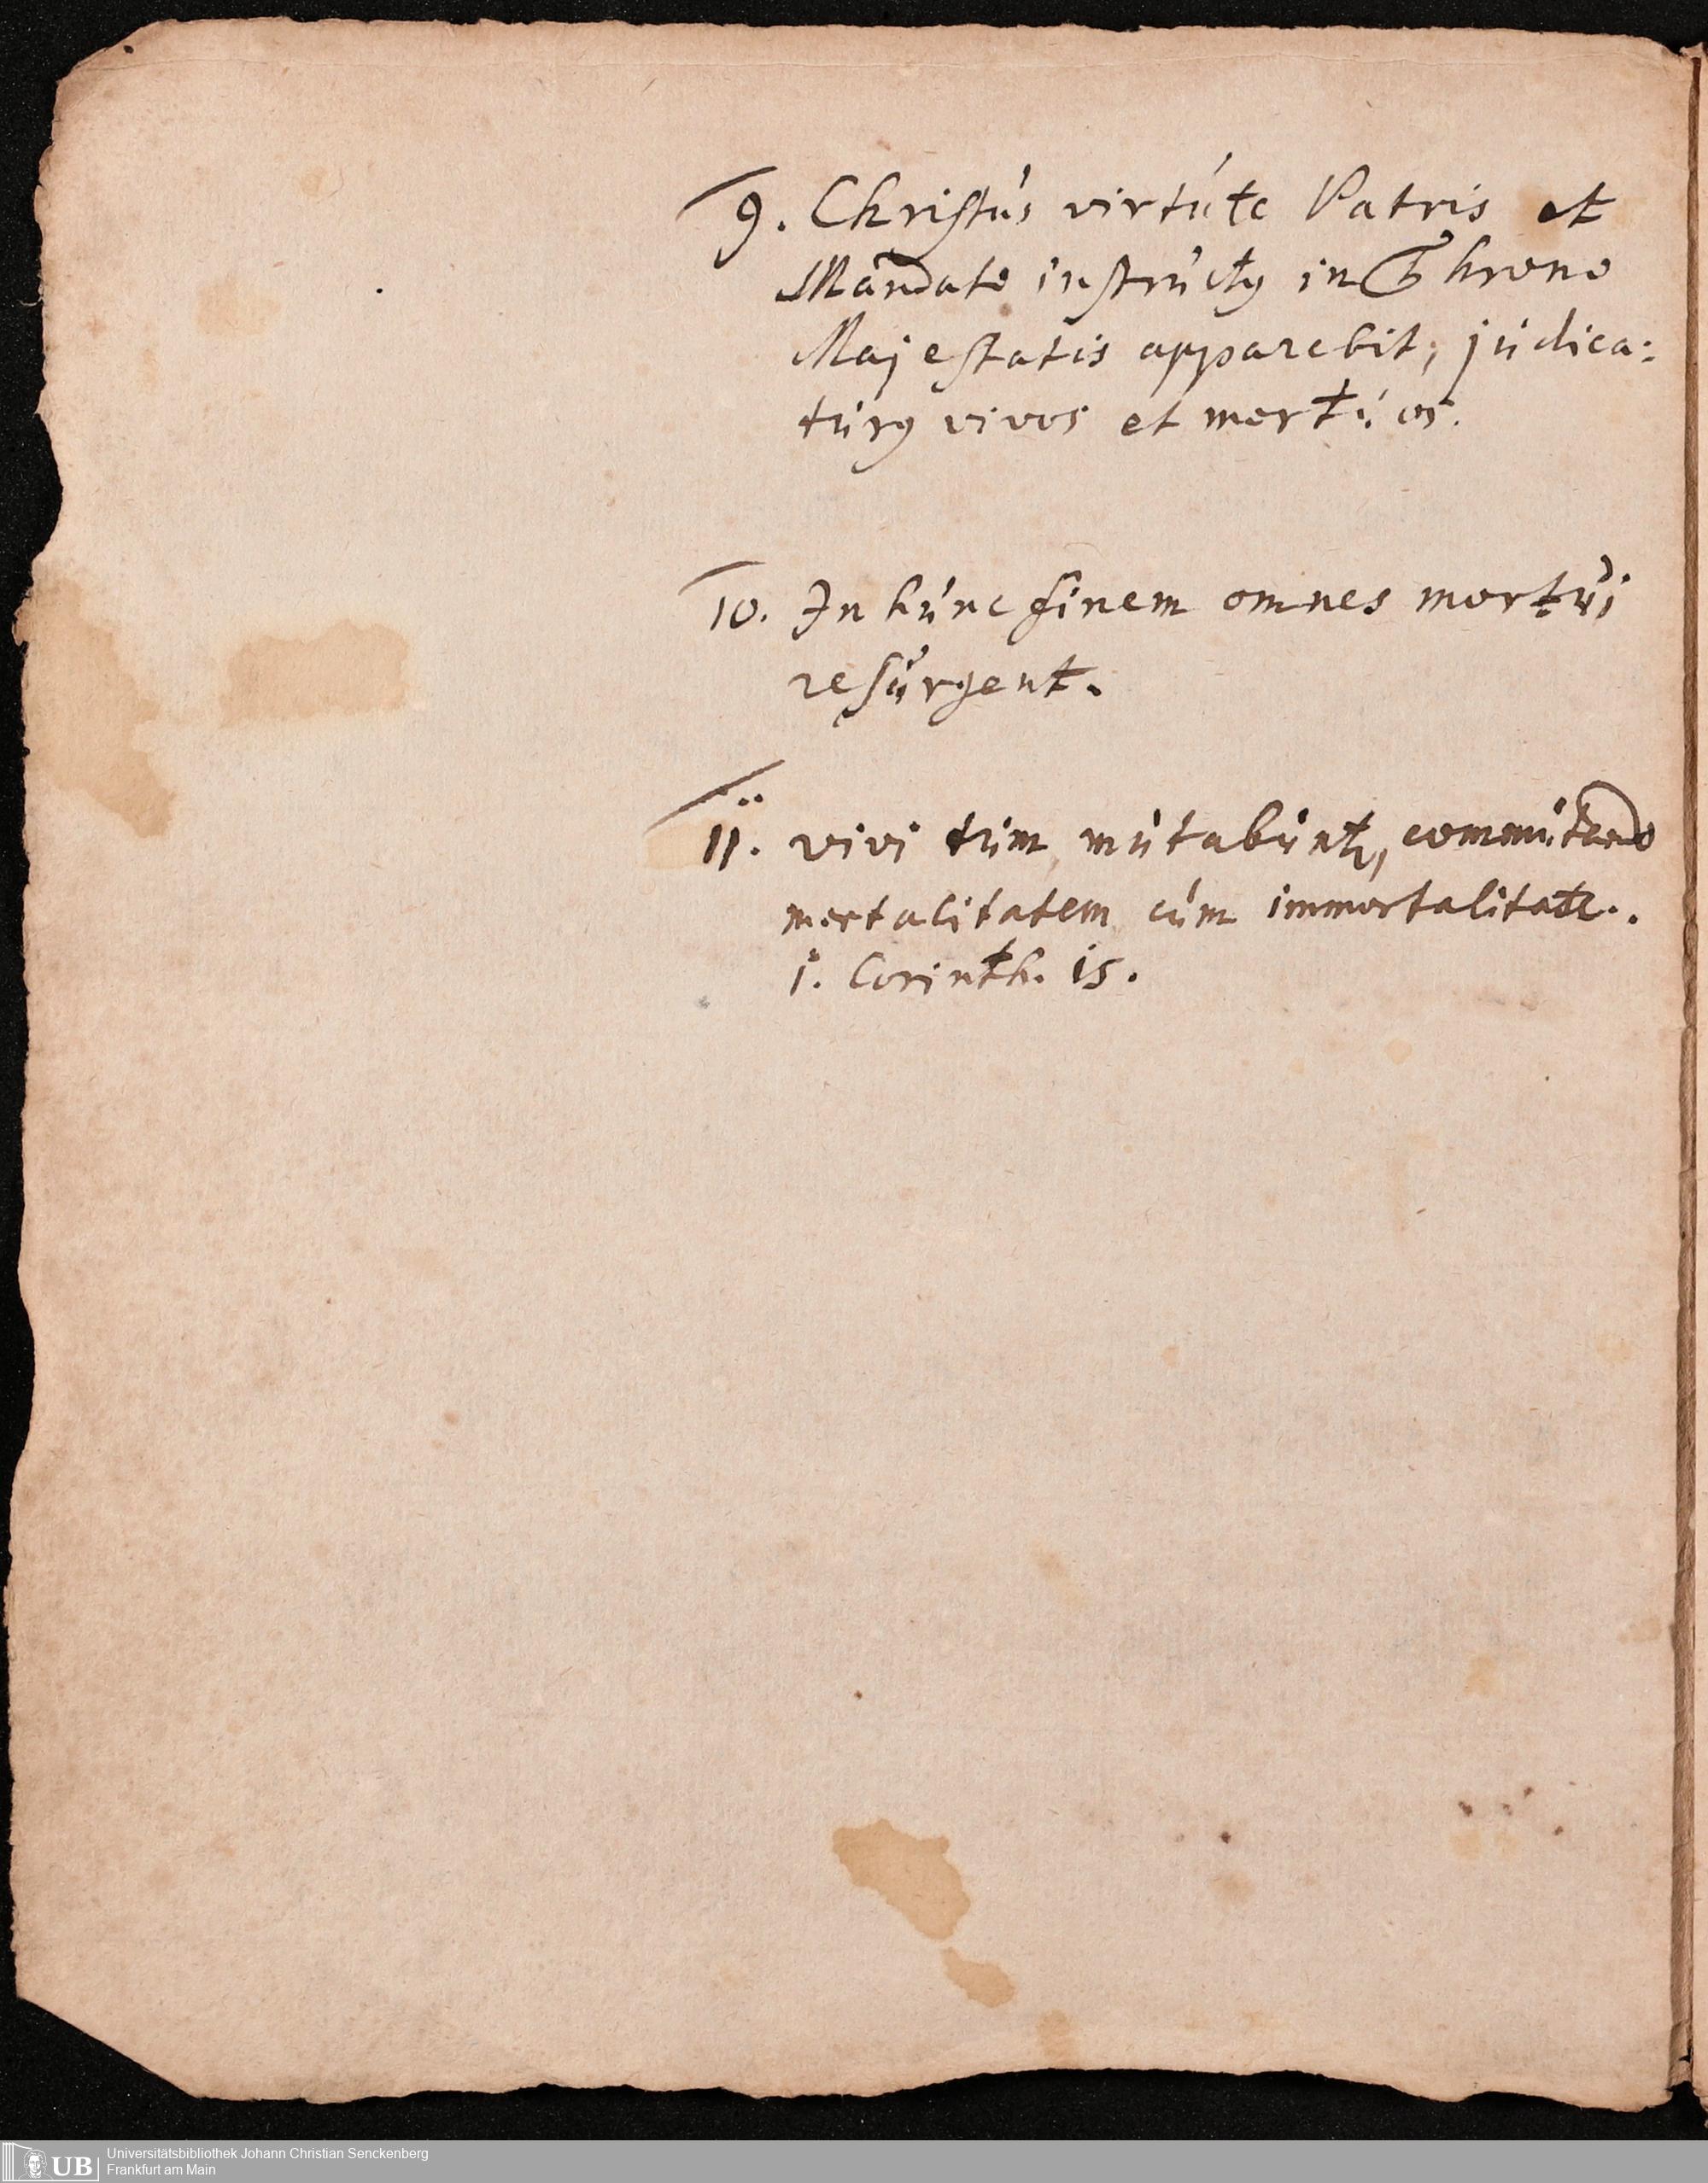 9. Christús virtúte Patris et
Mandato instrúctꝰ in Throno
Majestatis apparebit, júdica:
túrꝰ vivos et mortúos.
10. In húnc finem omnes mortúi
resúrgent.
11. vivi túm mútabúntr, commútando
mortalitatem cúm immortalitate.
1. Corinth. 15.
UB Universitätsbibliothek Johann Christian Senckenberg
Frankfurt am Main